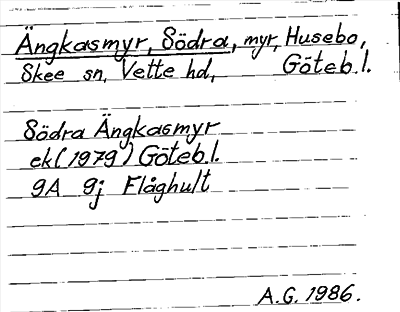 Ängkasmyr, Södra, myr, Husebo,
Skee sn, Vette hd, Göteb.l.
Södra Ängkasmyr
ek (1979) Göteb.l.
9A 9j Flåghult
A.G. 1986.